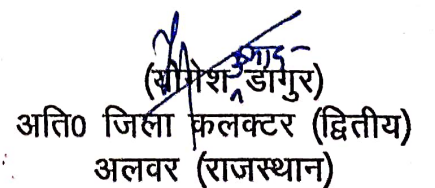 (योगेश कुमार डागुर)
अति0 जिला कलक्टर (द्वितीय)
अलवर (राजस्थान)